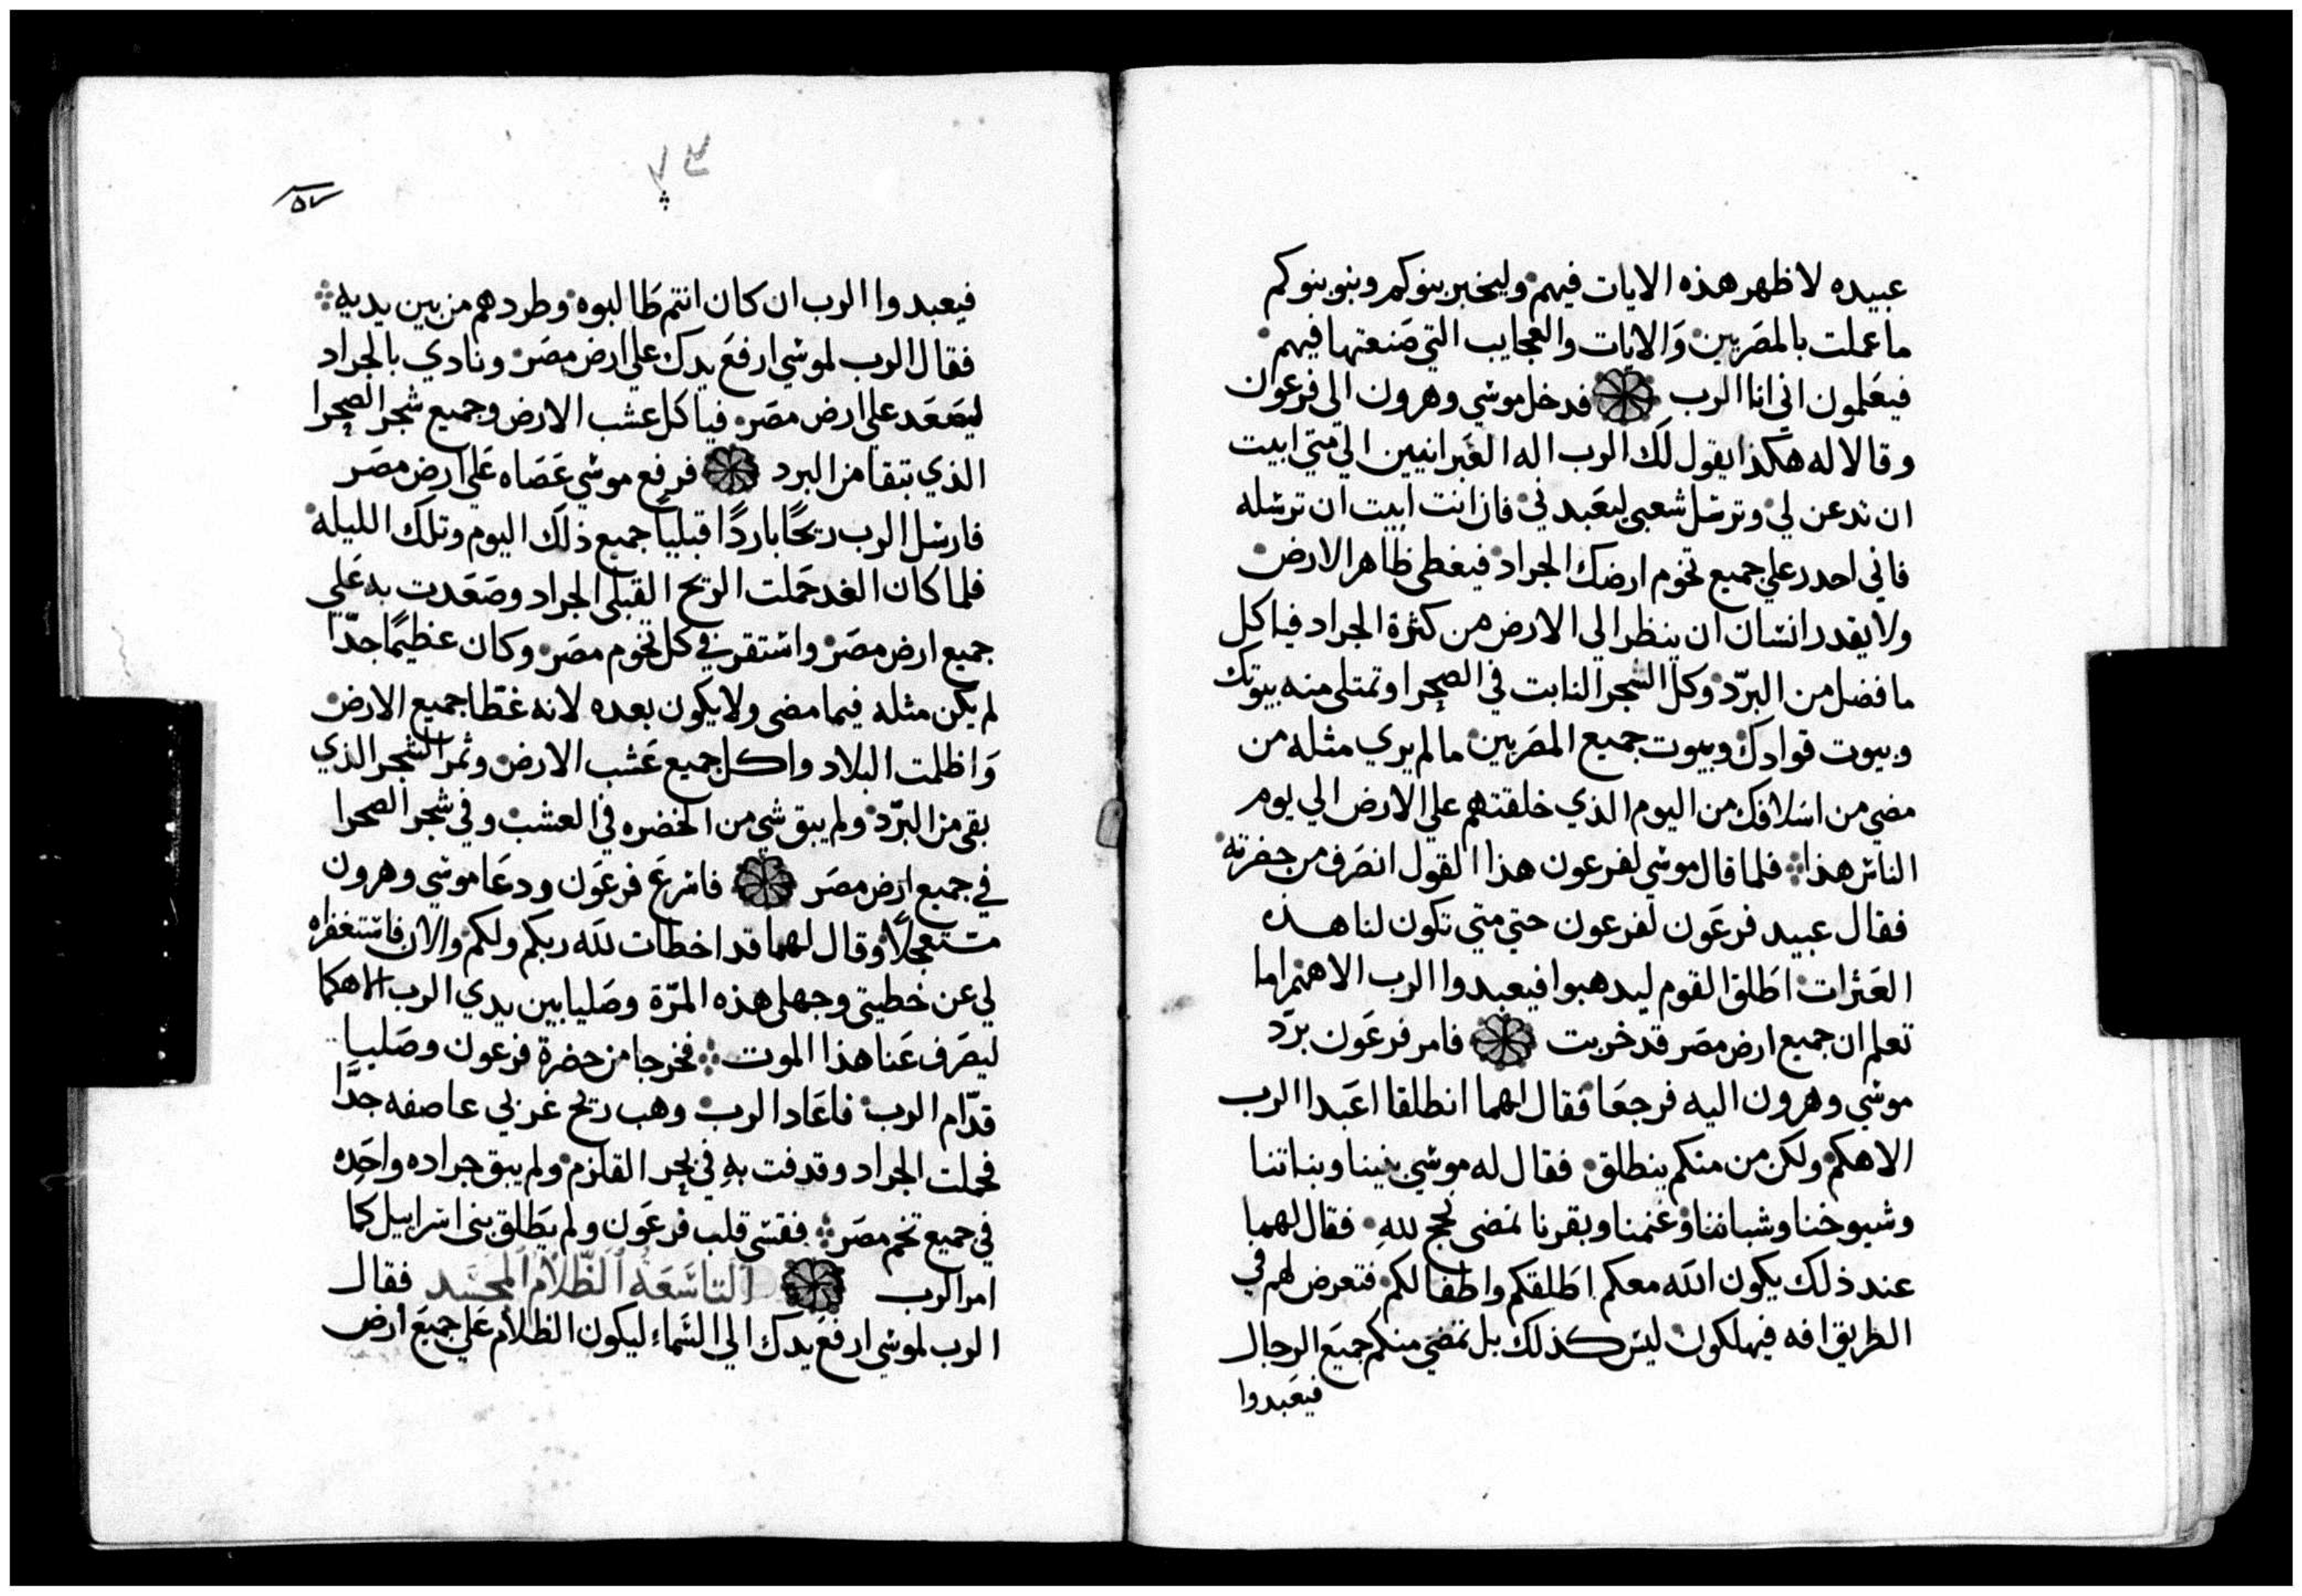 عبيده لاظهر هذه الايات فيهم وليخبر بنوكم وبنو بنوكم
ما عملت بالمصَريين وَالايات والعجايب التي صَنعتها فيهم
فيعَلمون اني انا الرب فدخل موسي وهرون الي فرعون
وقالا له هكذا يقول لك الرب اله العَبرانيين الي متي ابيت
ان تدعن لي وترسل شعبي ليعَبدني فان انت ابيت ان ترسله
فاني احدر علي جميع تخوم ارضك الجراد فيغطي ظاهر الارض
ولا يقدر انسان ان ينظر الي الارض من كثرة الجراد فياكل
ما فضل من البرّد وكل الشجر النابت في الصحرا وتمتلي منه بيوتك
وبيوت قوادك وبيوت جميع المصَريين ما لم يري مثله من
مضي من اسَلافك من اليوم الذي خلقتهم علي الارض الي يوم
الناس هذا فلما قال موسي لفرعون هذا القول انصَرف من حضرته
فقال عبيد فرعَون لفرعون حتي متي تكون لنا هذه
العَثرات اطَلق القوم ليدهبوا فيعبدوا الرب الاههم اما
تعلم ان جميع ارض مصَر قد خربت فامر فرعَون برَد
موسي وهرون اليه فرجعَا فقال لهما انطلقا اعَبدا الرب
الاهكم ولكن من منكم ينطلق فقال له موسي بنينا وبناتنا
وشيوخنا وشباننا وغنمنا وبقرنا نمضي نحج لله فقال لهما
عند ذلك يكون الله معكم اطَلقكم واطفالكم فتعرض لهم في
الطريق افه فيهلكون ليس كذلك بل تمضي منكم جميَع الرجال
فيعَبدوا
٧٣
٥٧
فيعبدوا الرب ان كان انتم طَالبوه وطردهم من بين يديه
فقال الرب لموسي ارفعَ يدك علي ارض مصَر ونادي بالجراد
ليصَعَد علي ارض مصَر فياكل عشب الارض وجميع شجر الصحرا
الذي تبقا من البرد فرفع موسي عَصَاه عَلي ارض مصَر
فارسَل الرب ريحًا باردًا قبليا جميع ذلك اليوم وتلك الليله
فلما كان الغد حَملت الريح القبلي الجراد وصَعَدت به عَلي
جميع ارض مصَر واستقر في كل تخوم مصَر وكان عظيمًا جدّا
لم يكن مثله فيما مضي ولا يكون بعده لانه غطَا جميع الارض
وَاظلمت البلاد واكل جميع عَشب الارض وثمر الشجر الذي
بقي من البرّد ولم يبق شي من الخضره في العشب وفي شجر الصحرا
في جميع ارض مصَر فاسرعَ فرعَون ودعَا موسي وهرون
مستعجلًا وقال لهما قد اخطات لله ربكم ولكم والان فاستغفراه
لي عن خطيتي وجهلي هذه المرّة وصَليا بين يدي الرب الاهكما
ليصَرف عَنا هذا الموت فخرجا من حضرة فرعون وصَليا
قدّام الرب فاعَاد الرب وهب ريح غربي عاصفه جدًّا
فحملت الجراد وقدفت به في بحر القلزم ولم يبق جراده واحَده
في جميع تخم مصَر فقسي قلب فرعَون ولم يَطلق بني اسَراييل كما
امر الرب التاسَعَه الظّلام المجسَد فقال
الرب لموسي ارفعَ يدك الي السَماء ليكون الظلام عَلي جميَع أرض